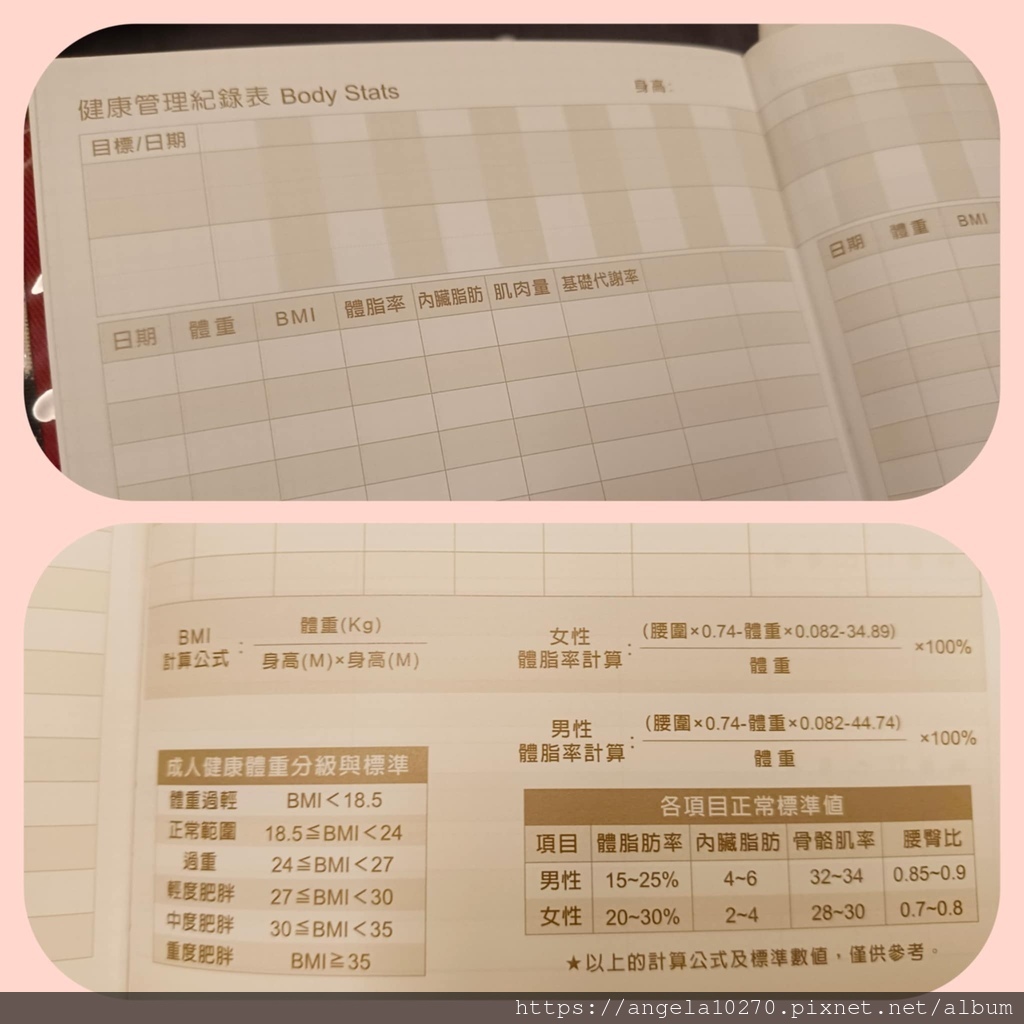 健康管理紀錄表 Body Stats
身高:
目標/日期
日期 體重 BMI 體脂率 內臟脂肪 肌肉量 基礎代謝率
日期 體重 BMI
BMI
計算公式
:
體重(Kg)
身高(M)×身高(M)
女性
體脂率計算
:
(腰圍×0.74-體重×0.082-34.89)
體重
×100%
男性
體脂率計算
:
(腰圍×0.74-體重×0.082-44.74)
體重
×100%
成人健康體重分級與標準
體重過輕 BMI＜18.5
正常範圍 18.5≦BMI＜24
過重 24≦BMI＜27
輕度肥胖 27≦BMI＜30
中度肥胖 30≦BMI＜35
重度肥胖 BMI≧35
各項目正常標準值
項目 體脂肪率 內臟脂肪 骨骼肌率 腰臀比
男性 15~25% 4~6 32~34 0.85~0.9
女性 20~30% 2~4 28~30 0.7~0.8
★以上的計算公式及標準數值，僅供參考。
https://angela10270.pixnet.net/album